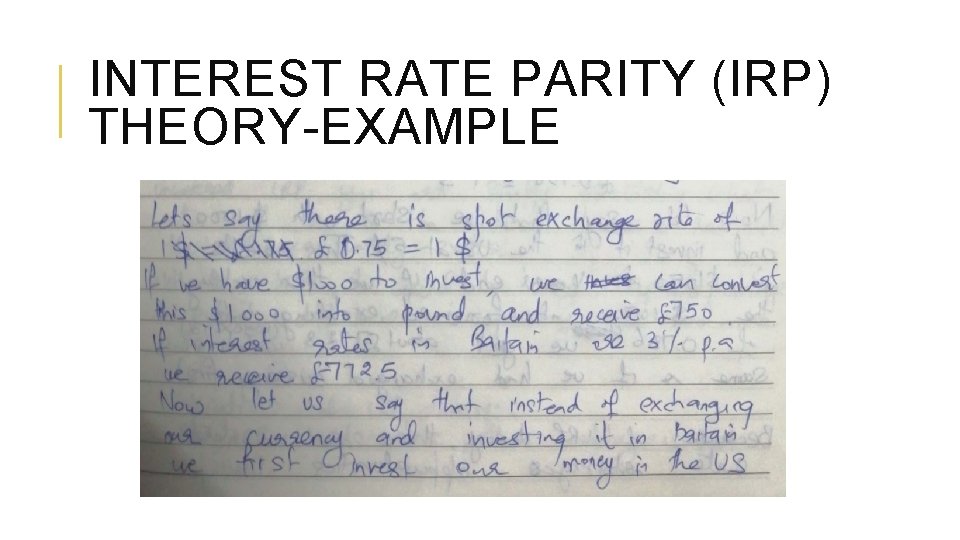 INTEREST RATE PARITY (IRP)
THEORY-EXAMPLE
Lets say there is spot exchange rite of
£ 0.75 = 1 $
If we have $1000 to invest, we can convert
this $1000 into pound and receive £750
If interest rates in Baitain are 3% p.a
we receive £772.5
Now let us say that instead of exchanging
our currency and investing it in Baitain
we first invest our money in the US